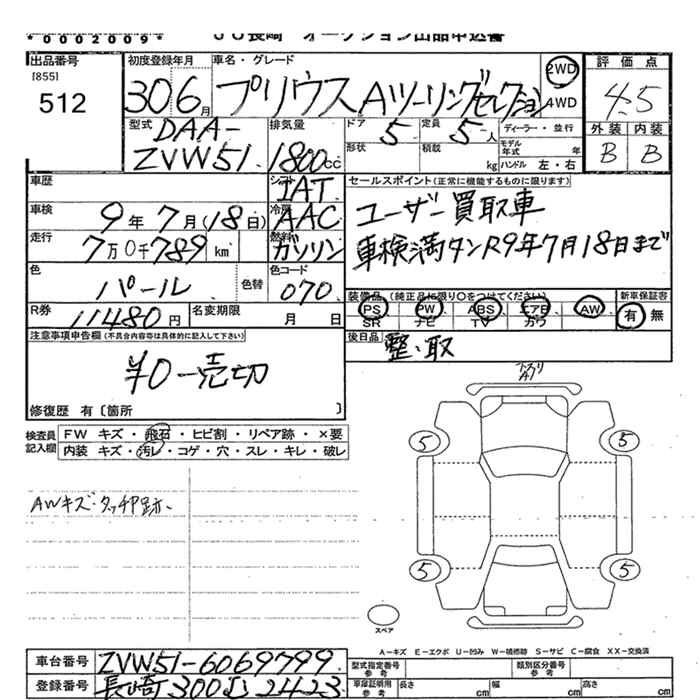 *0002009*
JU長崎 オークション出品申込書
出品番号 [855] 512
初度登録年月 30 6月
車名・グレード プリウス Aツーリングセレクション
2WD 4WD
評価点 4.5
外装 内装
B B
型式 DAA-ZVW51
排気量 1800cc
ドア 5 定員 5人
形状 積載 kg
ディーラー・並行
モデル年式 年
ハンドル 左・右
車歴
シフト IAT
セールスポイント(正常に機能するものに限ります)
ユーザー買取車
車検満タンR9年7月18日まで
車検 9年7月(18日)
冷房 AAC
走行 7万0千789km
燃料 ガソリン
色 パール 色替
色コード 070
装備品(純正品に限り○をつけてください)
PS PW ABS エアB AW
SR ナビ TV カワ
新車保証書 有 無
R券 11480円
名変期限 月 日
後日品 整・取
注意事項申告欄(不具合内容等は具体的に記入して下さい)
¥0一売切
修復歴 有〔箇所 〕
検査員記入欄
FW キズ・飛石・ヒビ割・リペア跡・×要
内装 キズ・汚レ・コゲ・穴・スレ・キレ・破レ
AWキズ・タッチP跡
5 5
5 5
スペア
A-キズ E-エクボ U-凹み W-補修跡 S-サビ C-腐食 XX-交換済
車台番号 ZVW51-6069799
型式指定番号 参考
類別区分番号 参考
登録番号 長崎300 2423
車庫証明用 参考 長さ cm 幅 cm 高さ cm